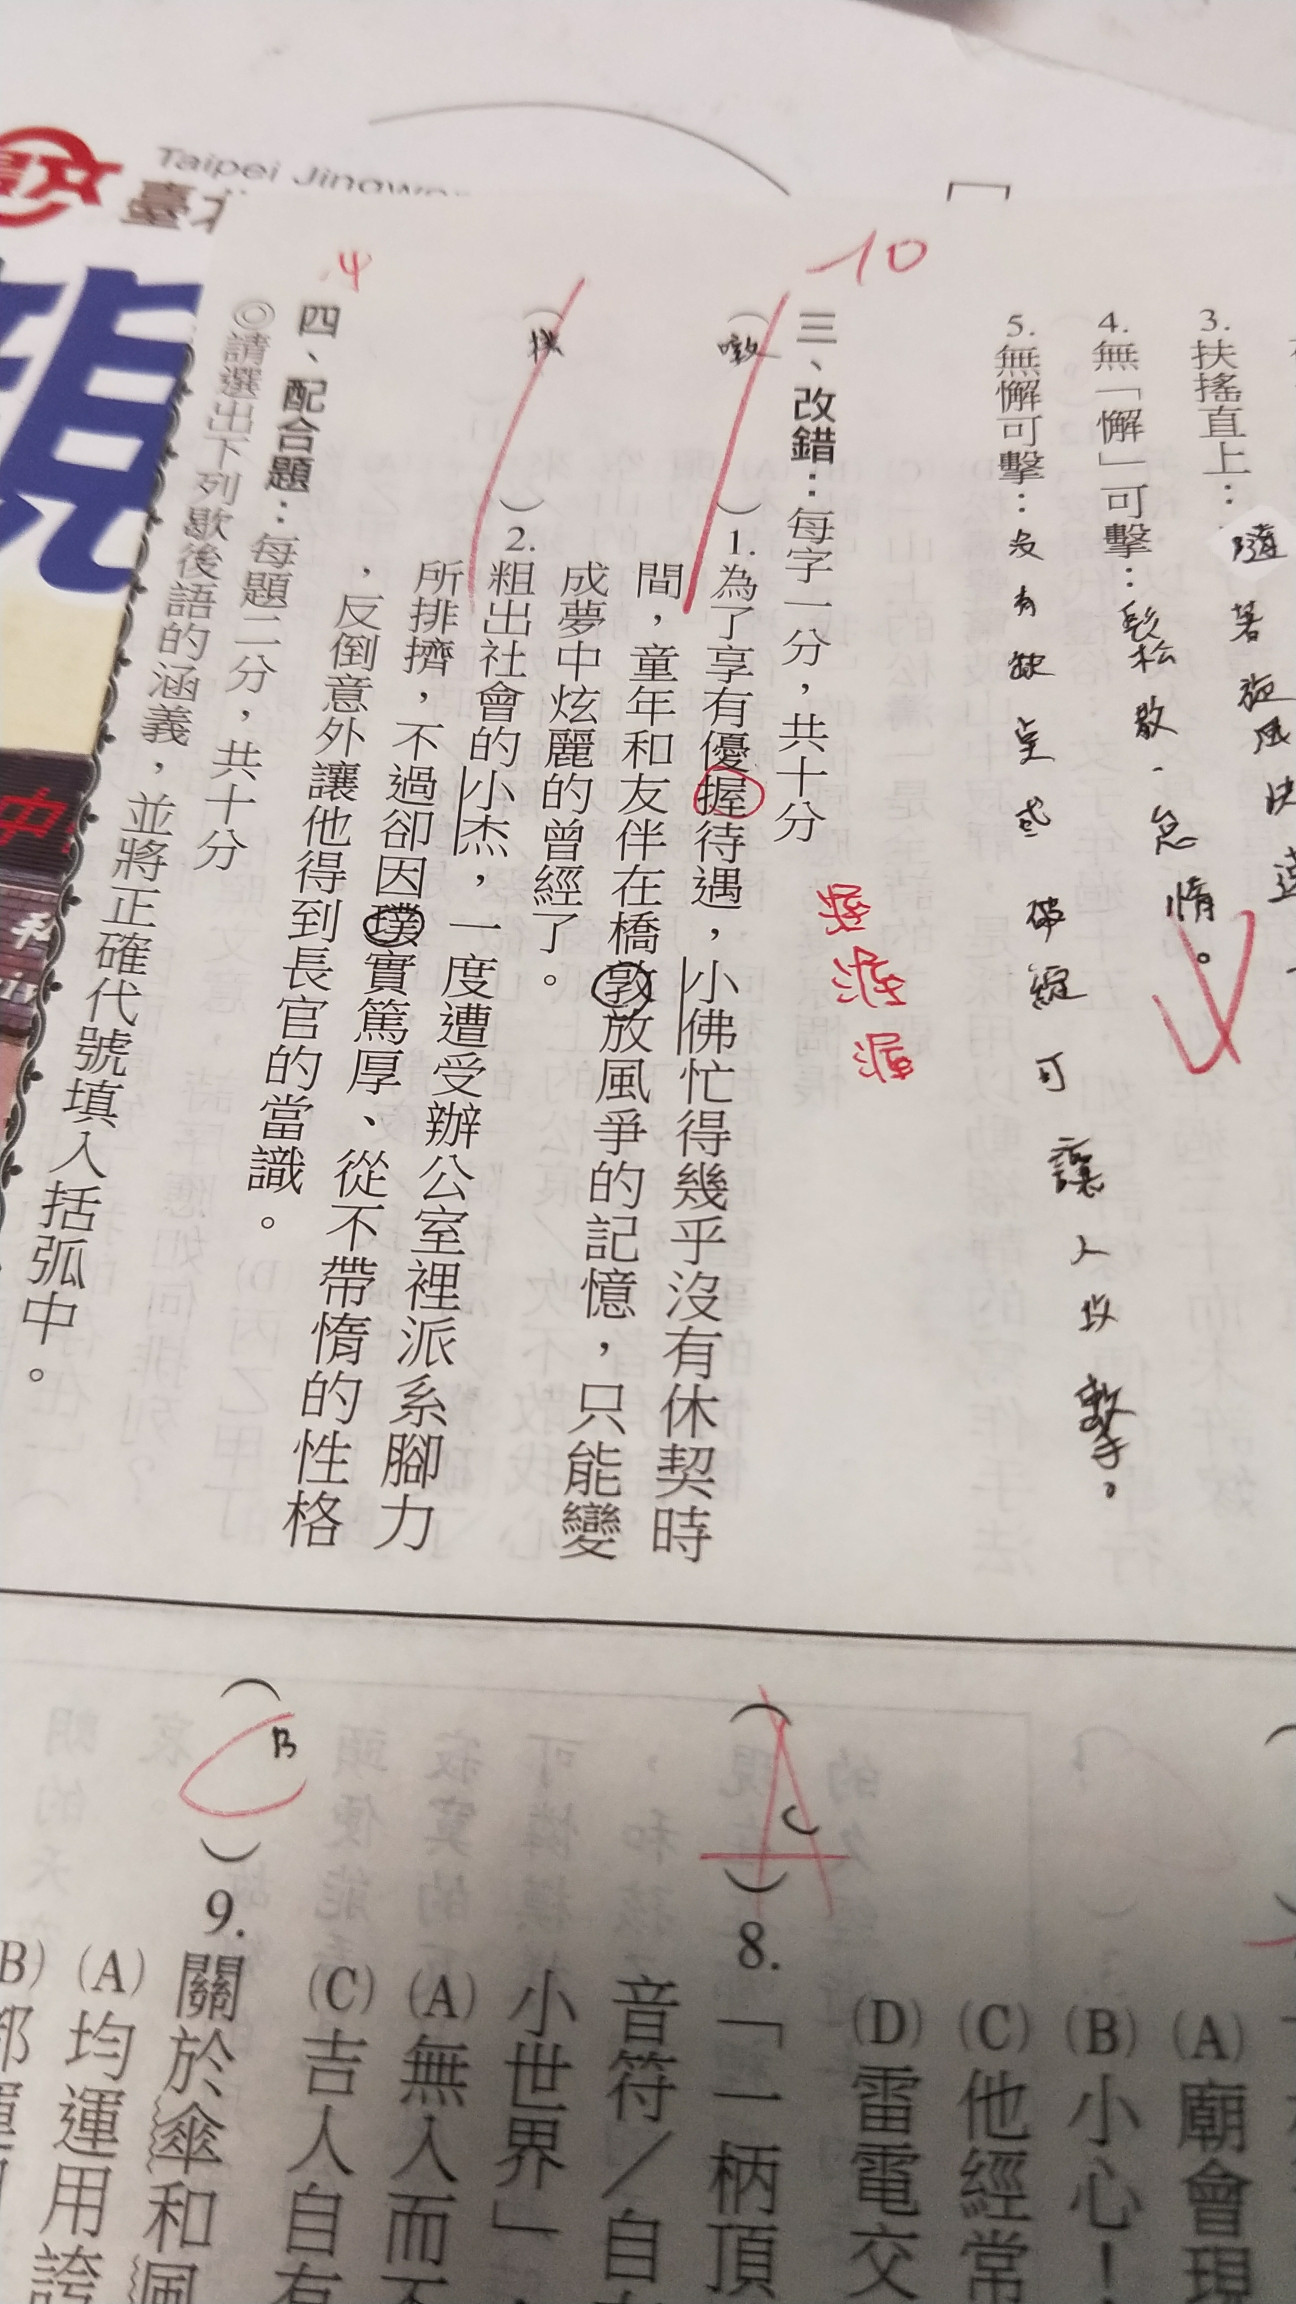 Taipei Jingwe
臺北
3. 扶搖直上：隨著旋風快速
4. 無「懈」可擊：鬆散、怠惰。
5. 無懈可擊：沒有缺點或破綻可讓人攻擊。
10
三、改錯：每字一分，共十分
渥渥渥
（噋）1. 為了享有優握待遇，小佛忙得幾乎沒有休契時
間，童年和友伴在橋敦放風爭的記憶，只能變
成夢中炫麗的曾經了。
（撲）2. 粗出社會的小杰，一度遭受辦公室裡派系腳力
所排擠，不過卻因璞實篤厚、從不帶惰的性格
，反倒意外讓他得到長官的當識。
4
四、配合題：每題二分，共十分
◎請選出下列歇後語的涵義，並將正確代號填入括弧中。
中
(A)廟會現
(B)小心！
(C)他經常
(D)雷電交
（C）8.「一柄頂
A
音符／自
小世界」
(A)無入而不
(C)吉人自有
（B）9. 關於傘和
(A)均運用誇
(B)都運用